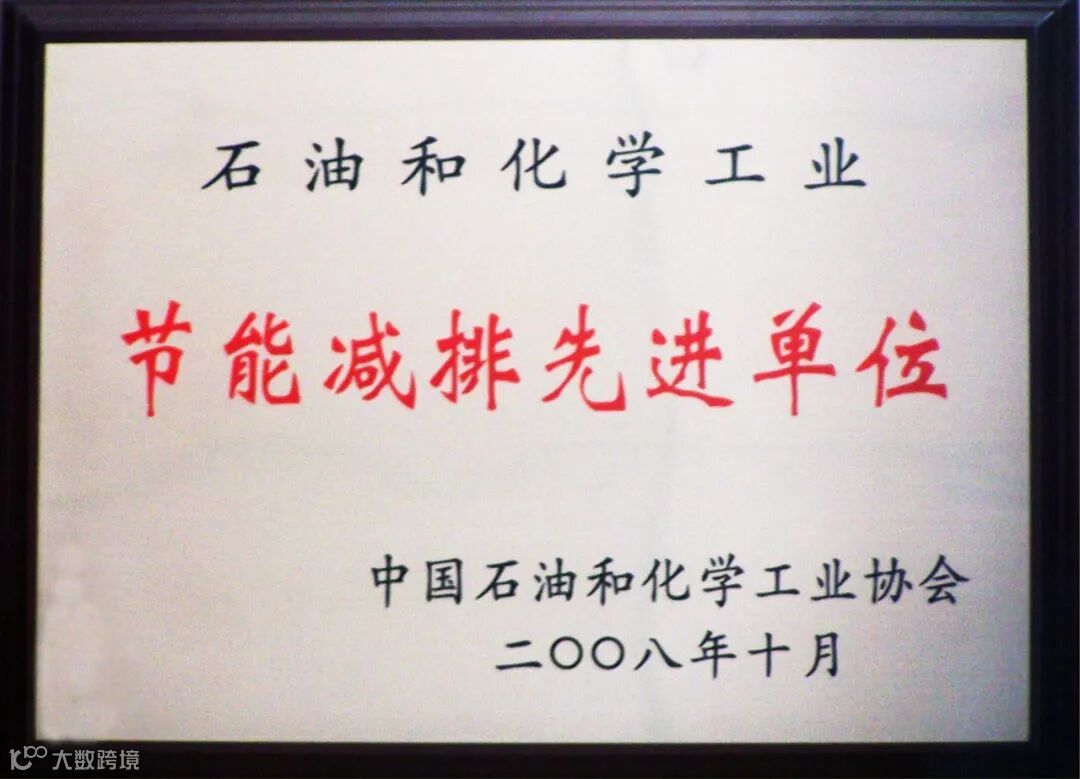 石油和化学工业
节能减排先进单位
中国石油和化学工业协会
二〇〇八年十月
10100 大数跨境